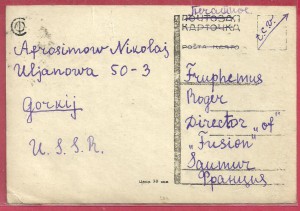 Печатное
ПОЧТОВАЯ
КАРТОЧКА
r.c.v.
Afrosimow Nikolaj
Uljanowa 50-3
Gorkij
U.S.S.R.
Fruphemus
Roger
Director "of"
"Fusion"
Saumur
Франция
Цена 30 коп